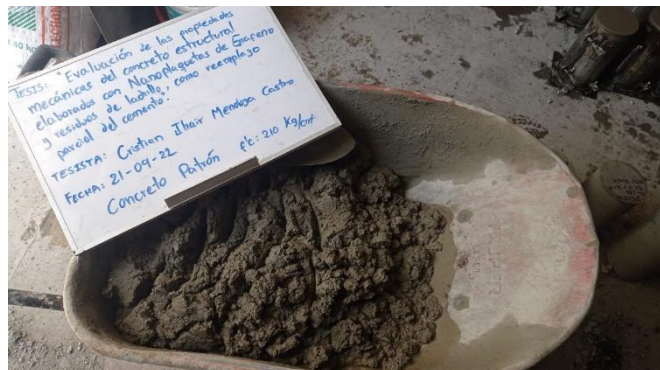 TESIS: "Evaluación de las propiedades
mecánicas del concreto estructural
elaborados con Nanoplaquetas de Grafeno
y residuos de ladrillo, como reemplazo
parcial del cemento."
TESISTA: Cristian Jhair Mendoza Castro
FECHA: 21-09-22
Concreto Patrón f'c: 210 Kg/cm²